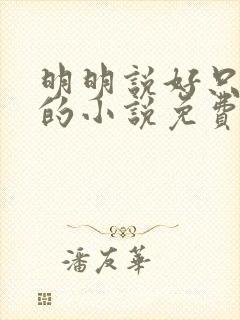 明明説好只
的小説免費
潘友華